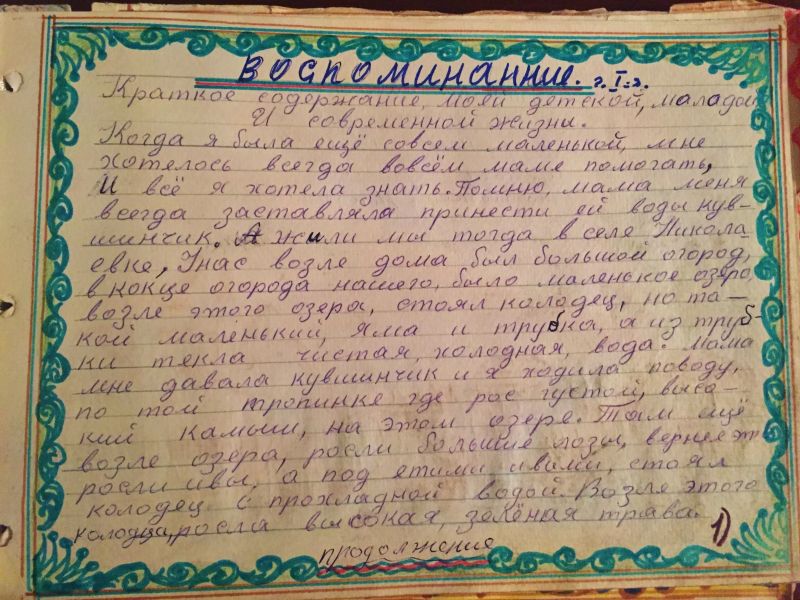 Воспоминанние. г. I-г.
Краткое содержание, моей детской, маладой
И современной жизны.
Когда я была ещё совсем маленькой, мне
хотелось всегда вовсём маме помогать,
И всё я хотела знать. Помню, мама меня
всегда заставляла принести ей воды кув-
шинчик. А жили мы тогда в селе Никола-
евке, Унас возле дома был большой огород,
в конце огорода нашего, было маленькое озеро,
возле этого озера, стоял колодец, но та-
кой маленький, яма и трубка, а из труб-
ки текла чистая, холодная, вода. Мама
мне давала кувшинчик и я ходила поводу,
по той тропинке где рос густой, выса-
кий камыш, на этом озере. Там ещё
возле озера, росли большие лозы, вернее
росли ивы, а под етими ивами, стоял
колодец с прохладной водой. Возле этого
колодца, росла высокая, зелёная трава.
продолжение
1)